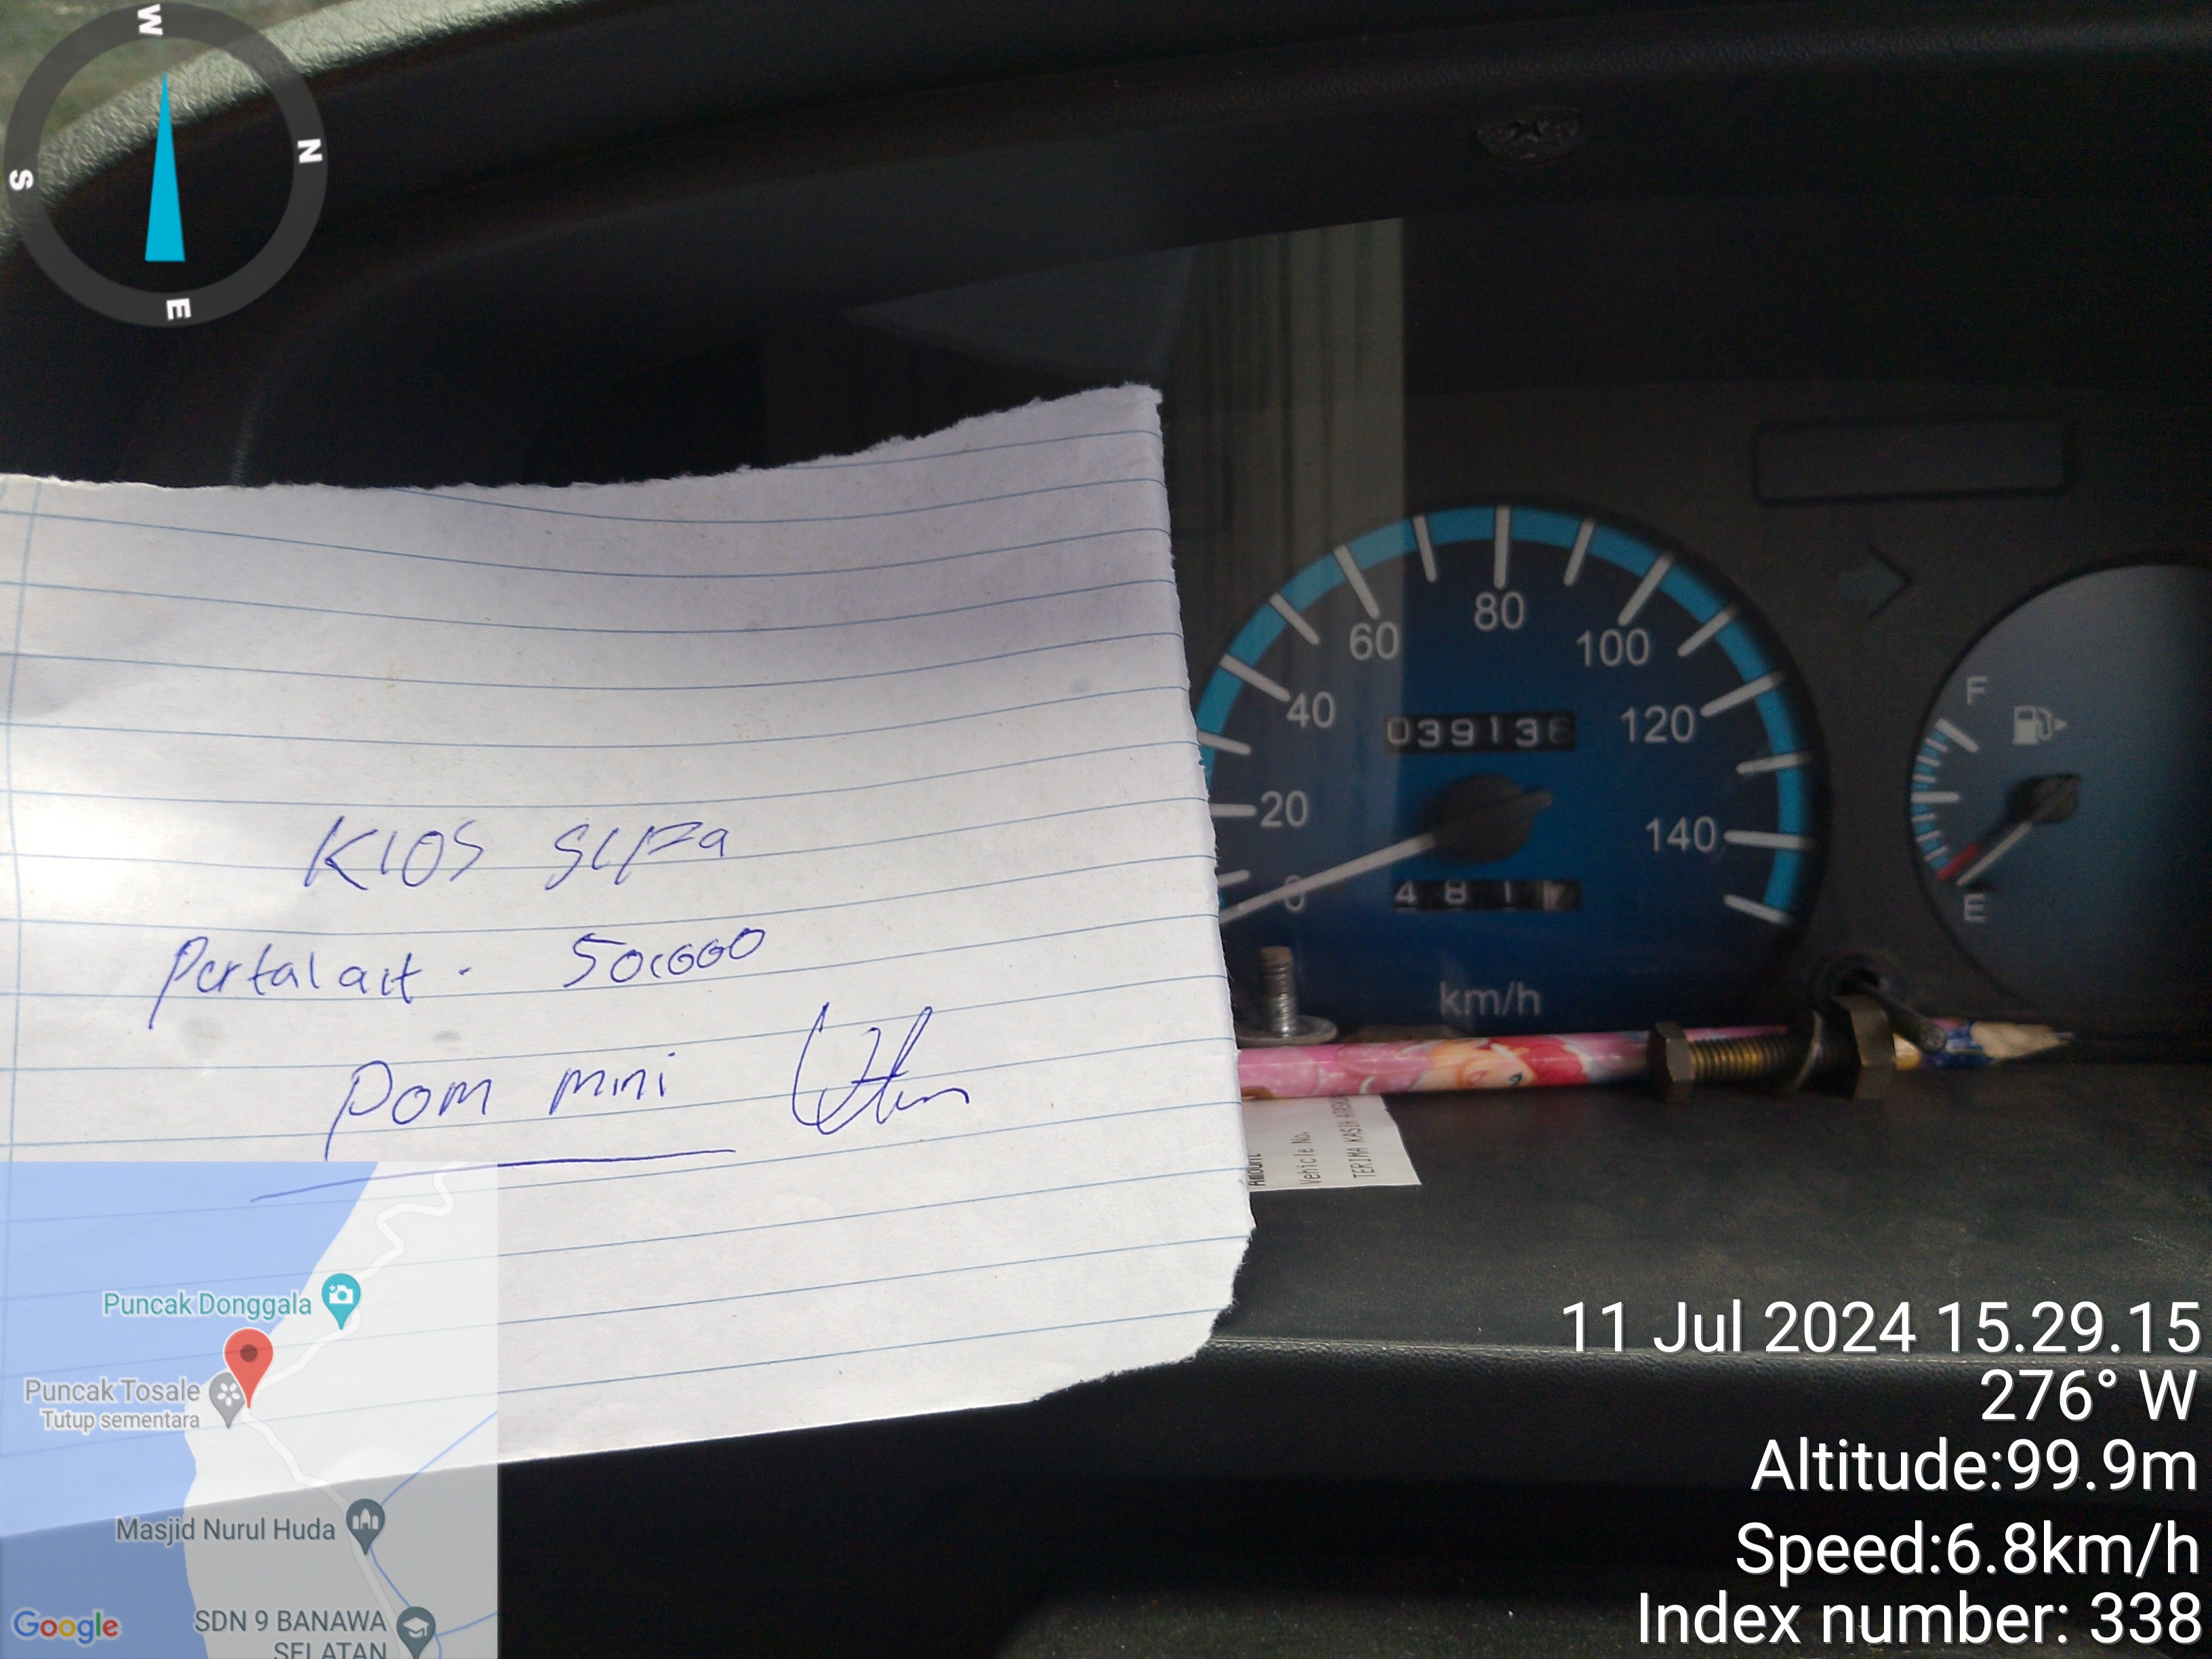 W
N
S
E
KIOS SIFa
Pertalait. 50.000
pom mini
60
80
100
40
120
20
140
0
039136
4 8 1
km/h
F
E
Amount
Vehicle No.
TERIMA KASIH
Puncak Donggala
Puncak Tosale
Tutup sementara
Masjid Nurul Huda
SDN 9 BANAWA
SELATAN
Google
11 Jul 2024 15.29.15
276° W
Altitude:99.9m
Speed:6.8km/h
Index number: 338